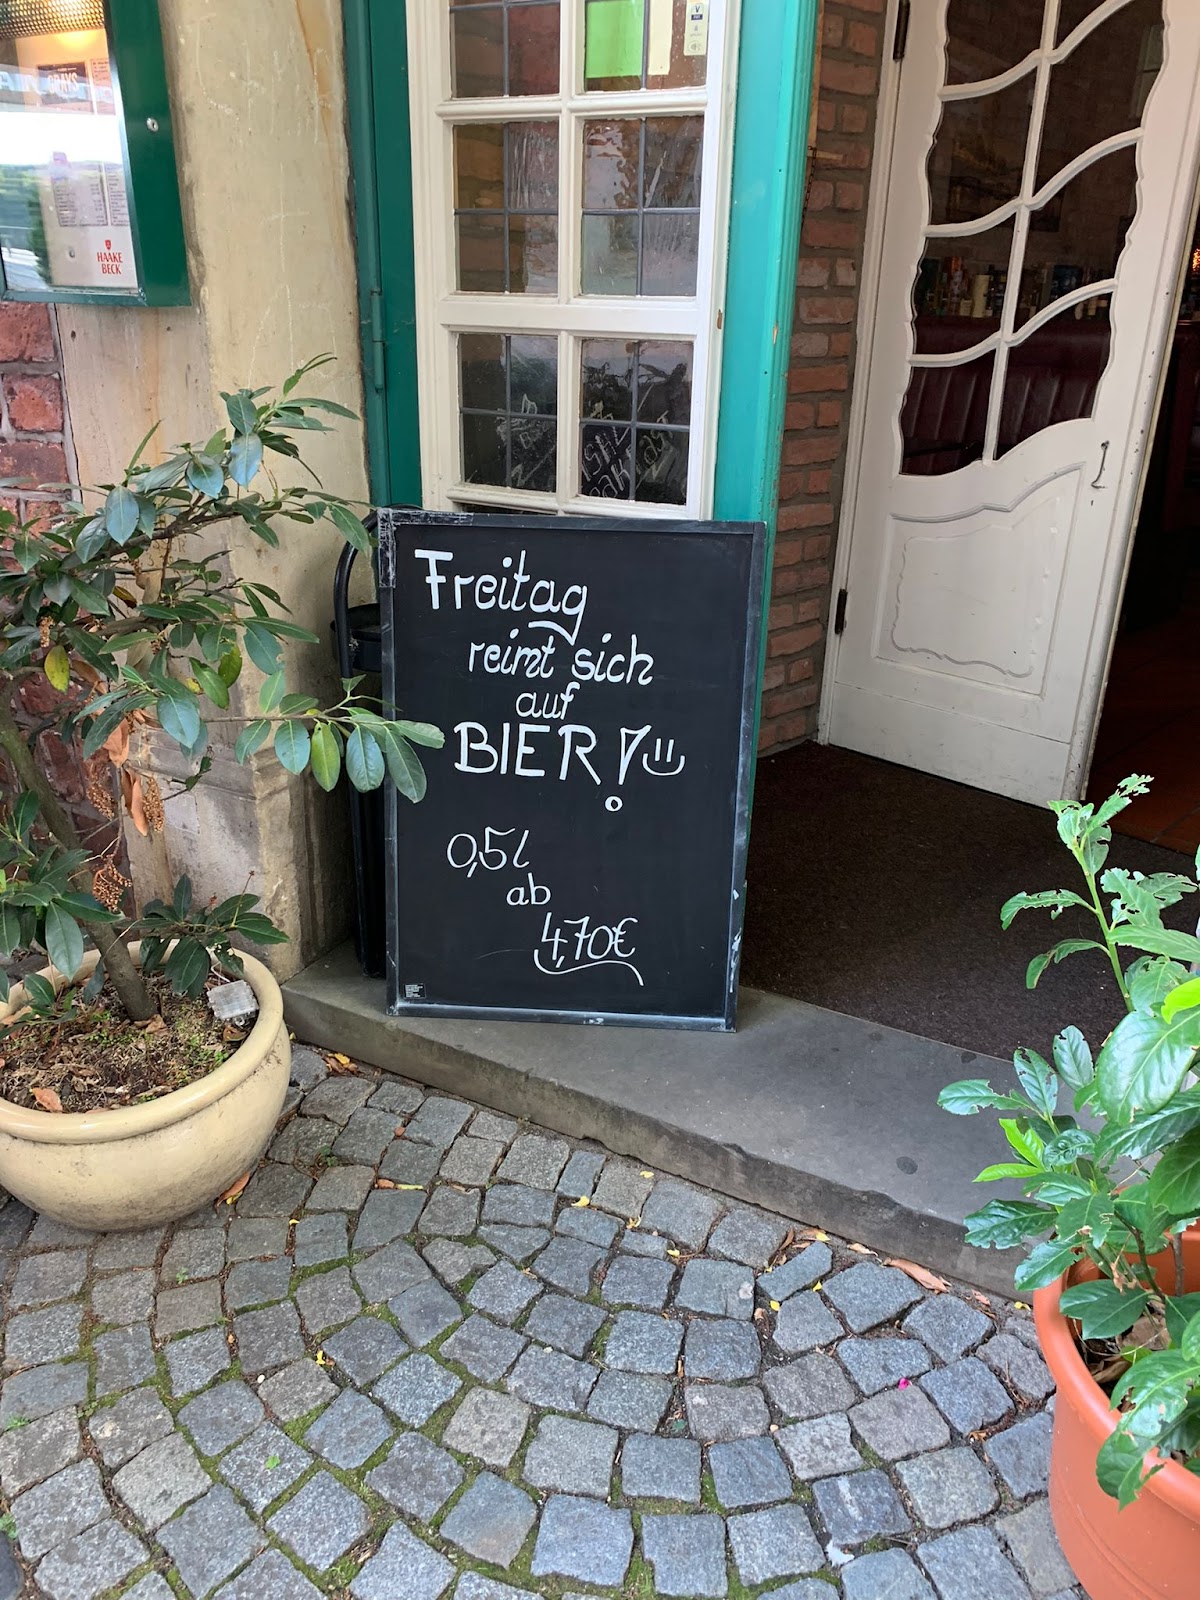 HAAKE
BECK
Freitag
reimt sich
auf
BIER!
0,5l
ab
4,70€